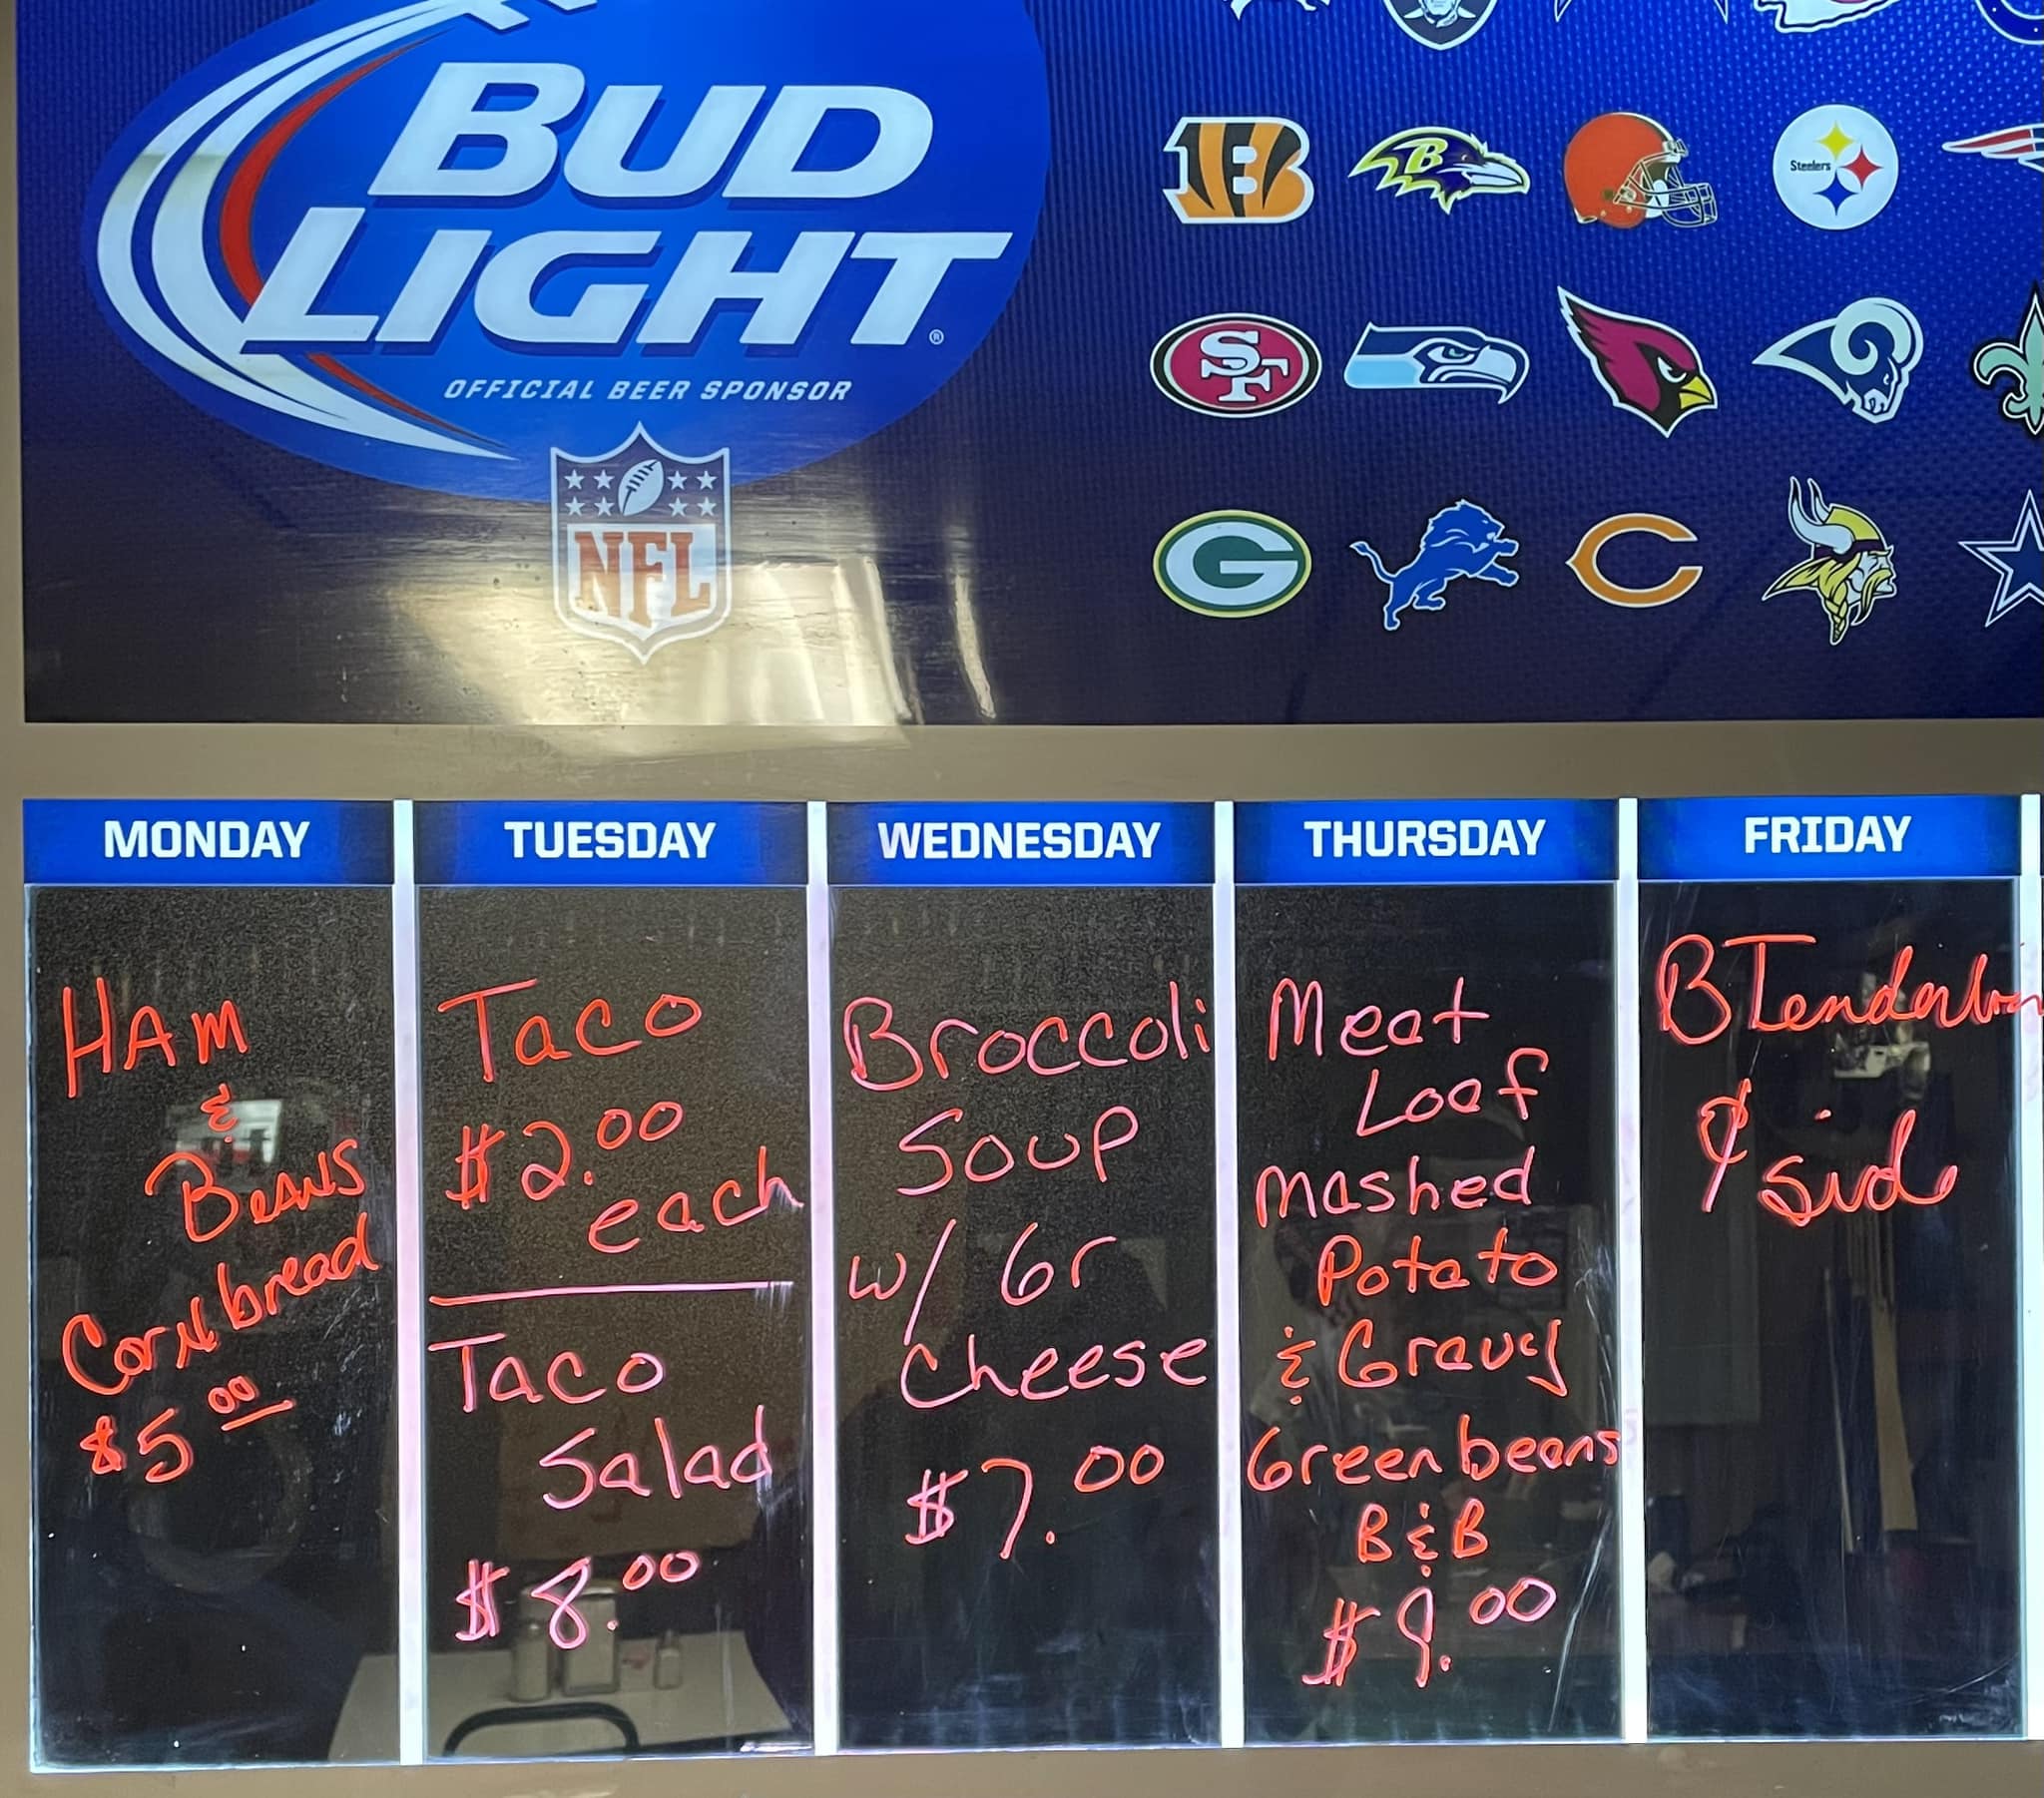 BUD
LIGHT®
OFFICIAL BEER SPONSOR
NFL
B
B
Steelers
SF
G
C
MONDAY
HAM
&
BEANS
Cornbread
$5.00
TUESDAY
Taco
$2.00
each
Taco
Salad
$8.00
WEDNESDAY
Broccoli
Soup
w/ Gr
Cheese
$7.00
THURSDAY
Meat
Loaf
Mashed
Potato
& Gravy
Green beans
B & B
$9.00
FRIDAY
B Tenderloin
& side